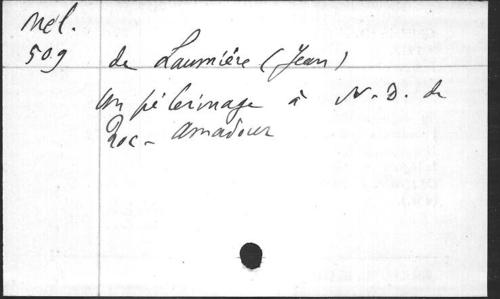 Mél.
509 de Laumière (Jean)
Un pèlerinage à N.-D. de
Roc-Amadour